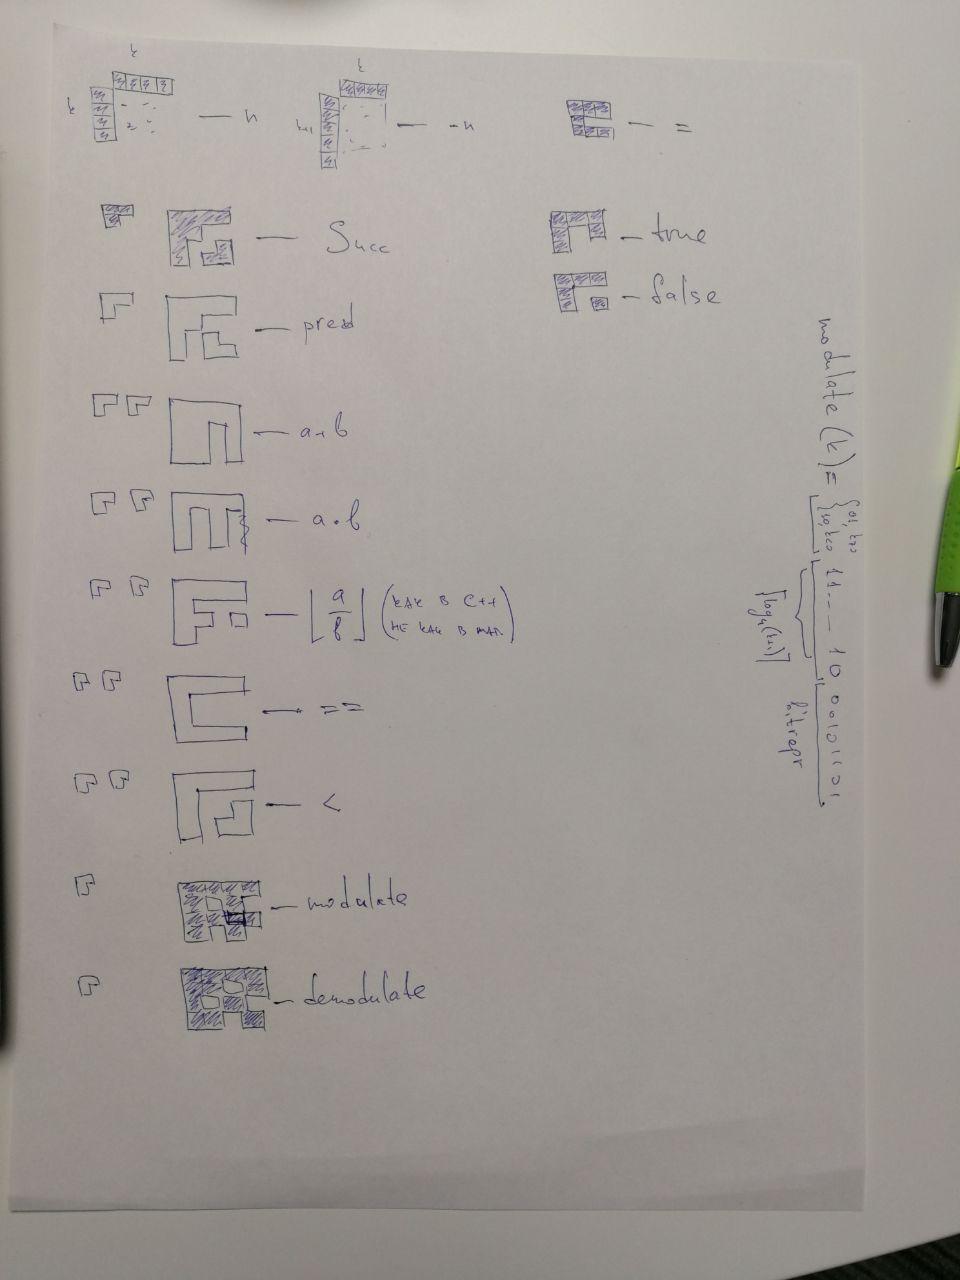 k
k
— n
k
k+1
— -n
— =
— Succ
— true
— pred
— false
— a+b
— a·b
— ⌊a/b⌋ (как в C++
не как в мат.)
— ==
— <
— modulate
— demodulate
modulate (k) = { 01, k≥0
10, k<0
11....10 00101101
⌈log₄(k+1)⌉
bitrepr